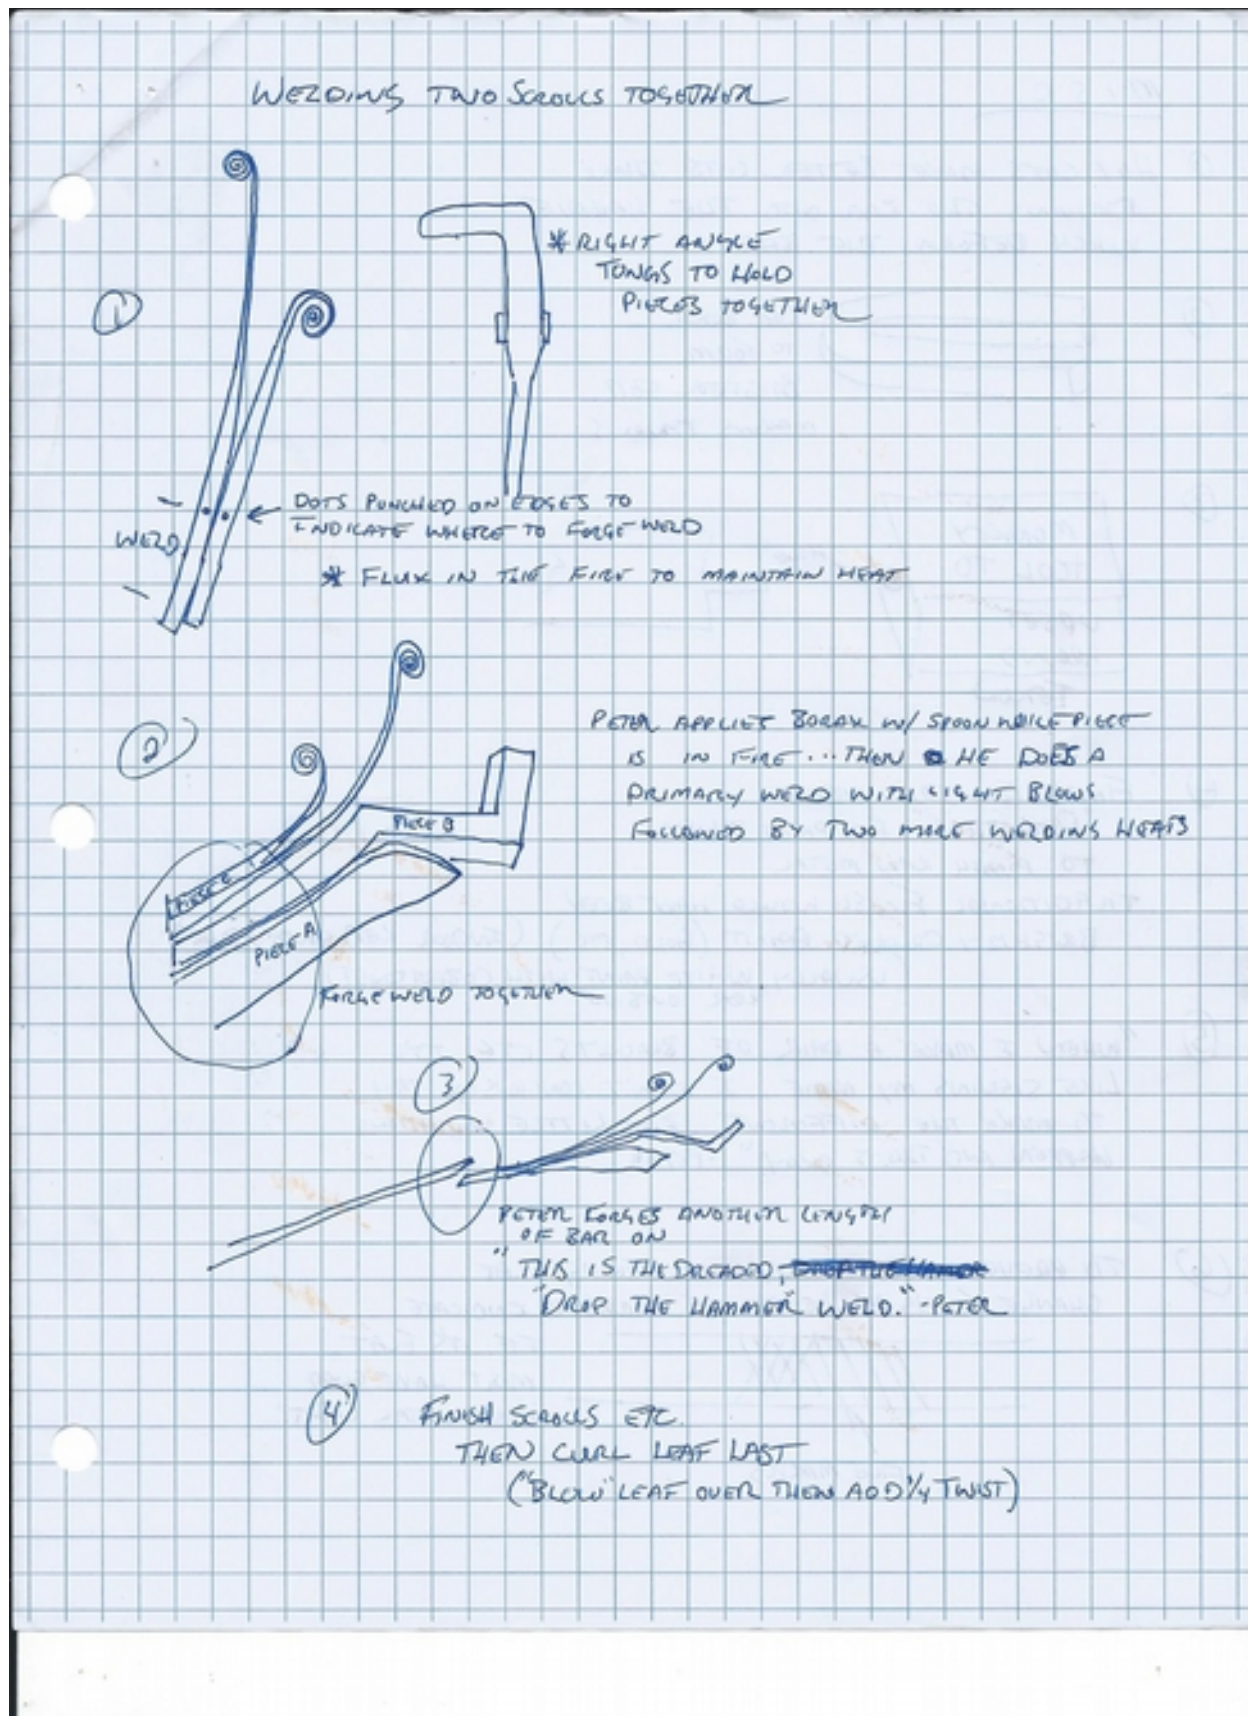 WELDING TWO SCROLLS TOGETHER
1
* RIGHT ANGLE
TONGS TO HOLD
PIECES TOGETHER
DOTS PUNCHED ON EDGES TO
INDICATE WHERE TO FORGE WELD
WELD
* FLUX IN THE FIRE TO MAINTAIN HEAT
2
PETER APPLIES BORAX W/ SPOON WHILE PIECE
IS IN FIRE... THEN HE DOES A
PRIMARY WELD WITH LIGHT BLOWS
FOLLOWED BY TWO MORE WELDING HEATS
PIECE B
PIECE C
PIECE A
FORGE WELD TOGETHER
3
PETER FORGES ANOTHER LENGTH
OF BAR ON
"THIS IS THE DREADED,
"DROP THE HAMMER" WELD." -PETER
4
FINISH SCROLLS ETC.
THEN CURL LEAF LAST
("BLOW" LEAF OVER THEN ADD 1/4 TWIST)